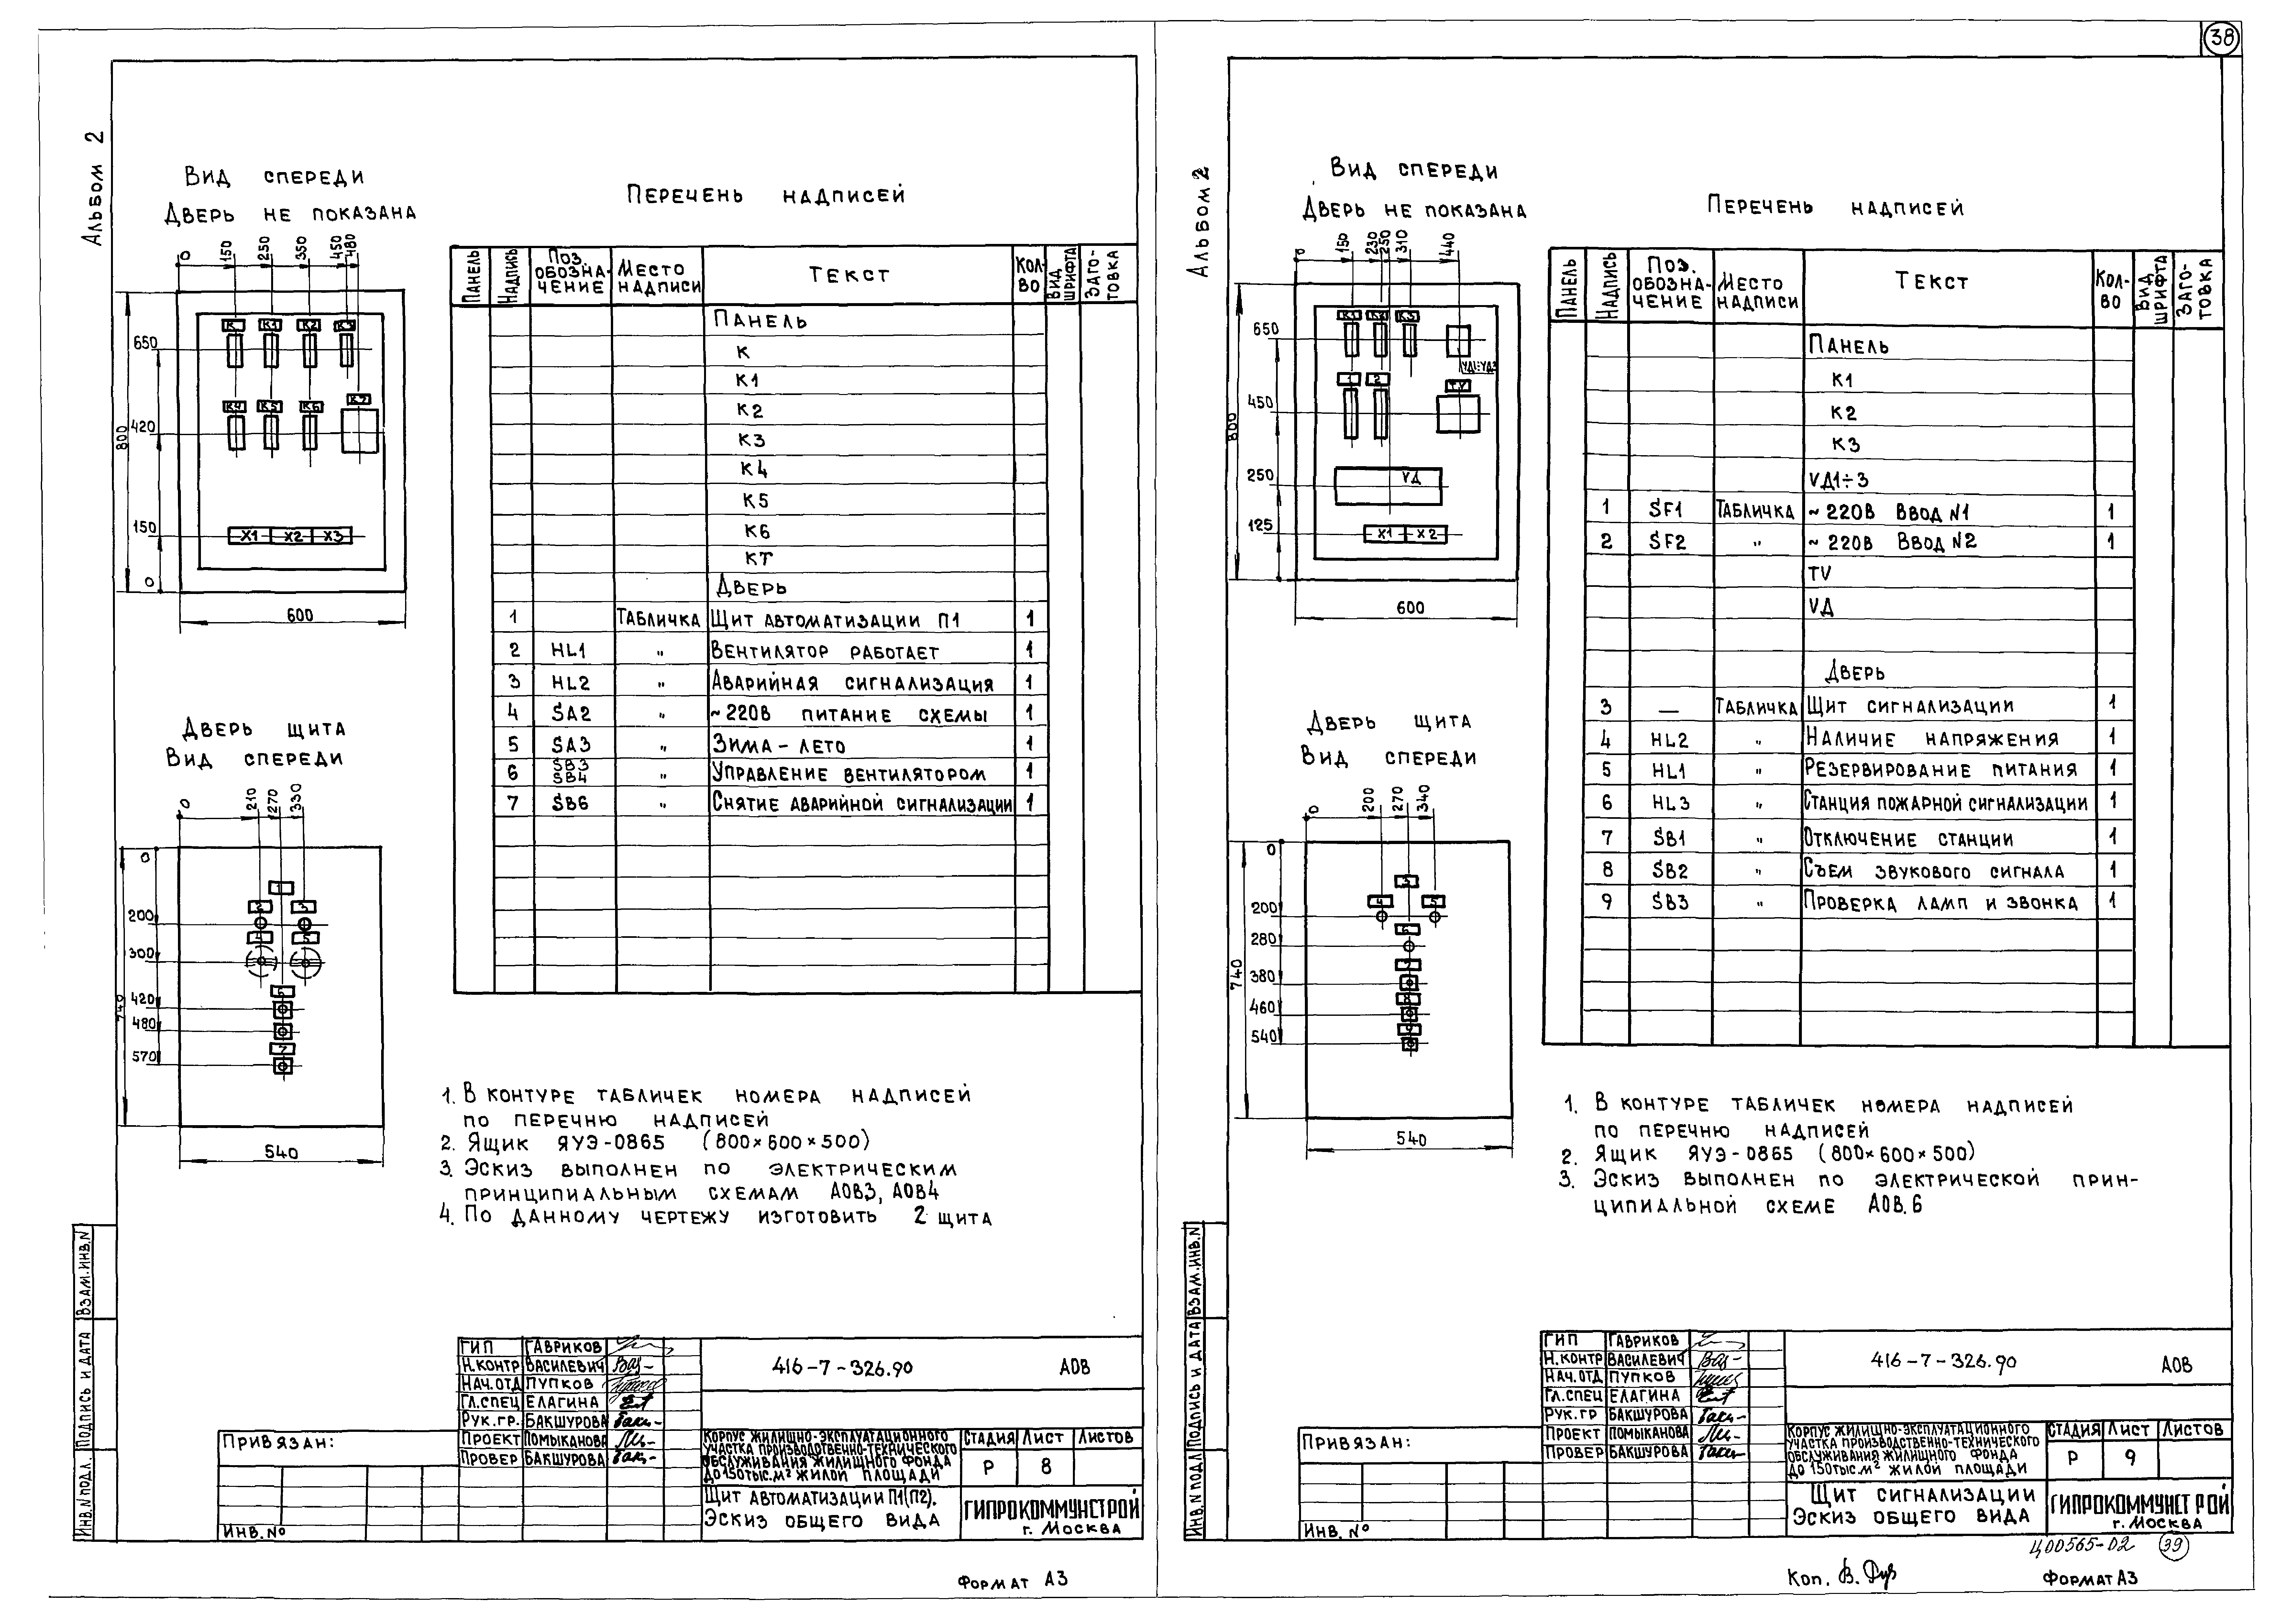 38
Альбом 2
Вид спереди
Дверь не показана
0 150 250 350 450 480
К К1 К2 К3
650
К4 К5 К6
420
800
Х1 Х2 Х3
150
0
600
Дверь щита
Вид спереди
0 210 270 330
0
1
2 3
200
4 5
300
6
420
480
7
570
740
540
Перечень надписей
Панель Надпись Поз. обозначение Место надписи Текст Кол-во Вид шрифта Заготовка
Панель
К
К1
К2
К3
К4
К5
К6
КТ
Дверь
1 Табличка Щит автоматизации П1 1
2 HL1 " Вентилятор работает 1
3 HL2 " Аварийная сигнализация 1
4 SA2 " ~220В питание схемы 1
5 SA3 " Зима - лето 1
6 SB3 SB4 " Управление вентилятором 1
7 SB6 " Снятие аварийной сигнализации 1
1. В контуре табличек номера надписей
по перечню надписей
2. Ящик ЯУЭ-0865 (800×600×500)
3. Эскиз выполнен по электрическим
принципиальным схемам АОВ3, АОВ4
4. По данному чертежу изготовить 2 щита
Инв.N подл. Подпись и дата Взам.инв.N
Привязан:
Инв. №
ГИП Гавриков
Н.контр Василевич
Нач.отд Пупков
Гл.спец Елагина
Рук.гр. Бакшурова
Проект Помыканова
Провер Бакшурова
416-7-326.90 АОВ
Корпус жилищно-эксплуатационного
участка производственно-технического
обслуживания жилищного фонда
до 150 тыс.м² жилой площади
Стадия Лист Листов
Р 8
Щит автоматизации П1(П2).
Эскиз общего вида
ГИПРОКОММУНСТРОЙ
г. Москва
Формат А3
Альбом 2
Вид спереди
Дверь не показана
0 150 230 250 310 440
К1 К2 К3
650
УД1÷УД3
1 2 TV
450
800
VД
250
Х1 Х2
125
600
Дверь щита
Вид спереди
0 200 270 340
0
3
4 5
200
6
280
7
380
8
460
9
540
740
540
Перечень надписей
Панель Надпись Поз. обозначение Место надписи Текст Кол-во Вид шрифта Заготовка
Панель
К1
К2
К3
VД1÷3
1 SF1 Табличка ~220В Ввод N1 1
2 SF2 " ~220В Ввод N2 1
TV
VД
Дверь
3 — Табличка Щит сигнализации 1
4 HL2 " Наличие напряжения 1
5 HL1 " Резервирование питания 1
6 HL3 " Станция пожарной сигнализации 1
7 SB1 " Отключение станции 1
8 SB2 " Съем звукового сигнала 1
9 SB3 " Проверка ламп и звонка 1
1. В контуре табличек номера надписей
по перечню надписей
2. Ящик ЯУЭ-0865 (800×600×500)
3. Эскиз выполнен по электрической прин-
ципиальной схеме АОВ.6
Инв.N подл Подпись и дата Взам.инв.N
Привязан:
Инв. №
ГИП Гавриков
Н.контр Василевич
Нач.отд Пупков
Гл.спец Елагина
Рук.гр Бакшурова
Проект Помыканова
Провер Бакшурова
416-7-326.90 АОВ
Корпус жилищно-эксплуатационного
участка производственно-технического
обслуживания жилищного фонда
до 150 тыс.м² жилой площади
Стадия Лист Листов
Р 9
Щит сигнализации
Эскиз общего вида
ГИПРОКОММУНСТРОЙ
г. Москва
Ц00565-02 39
Коп.
Формат А3